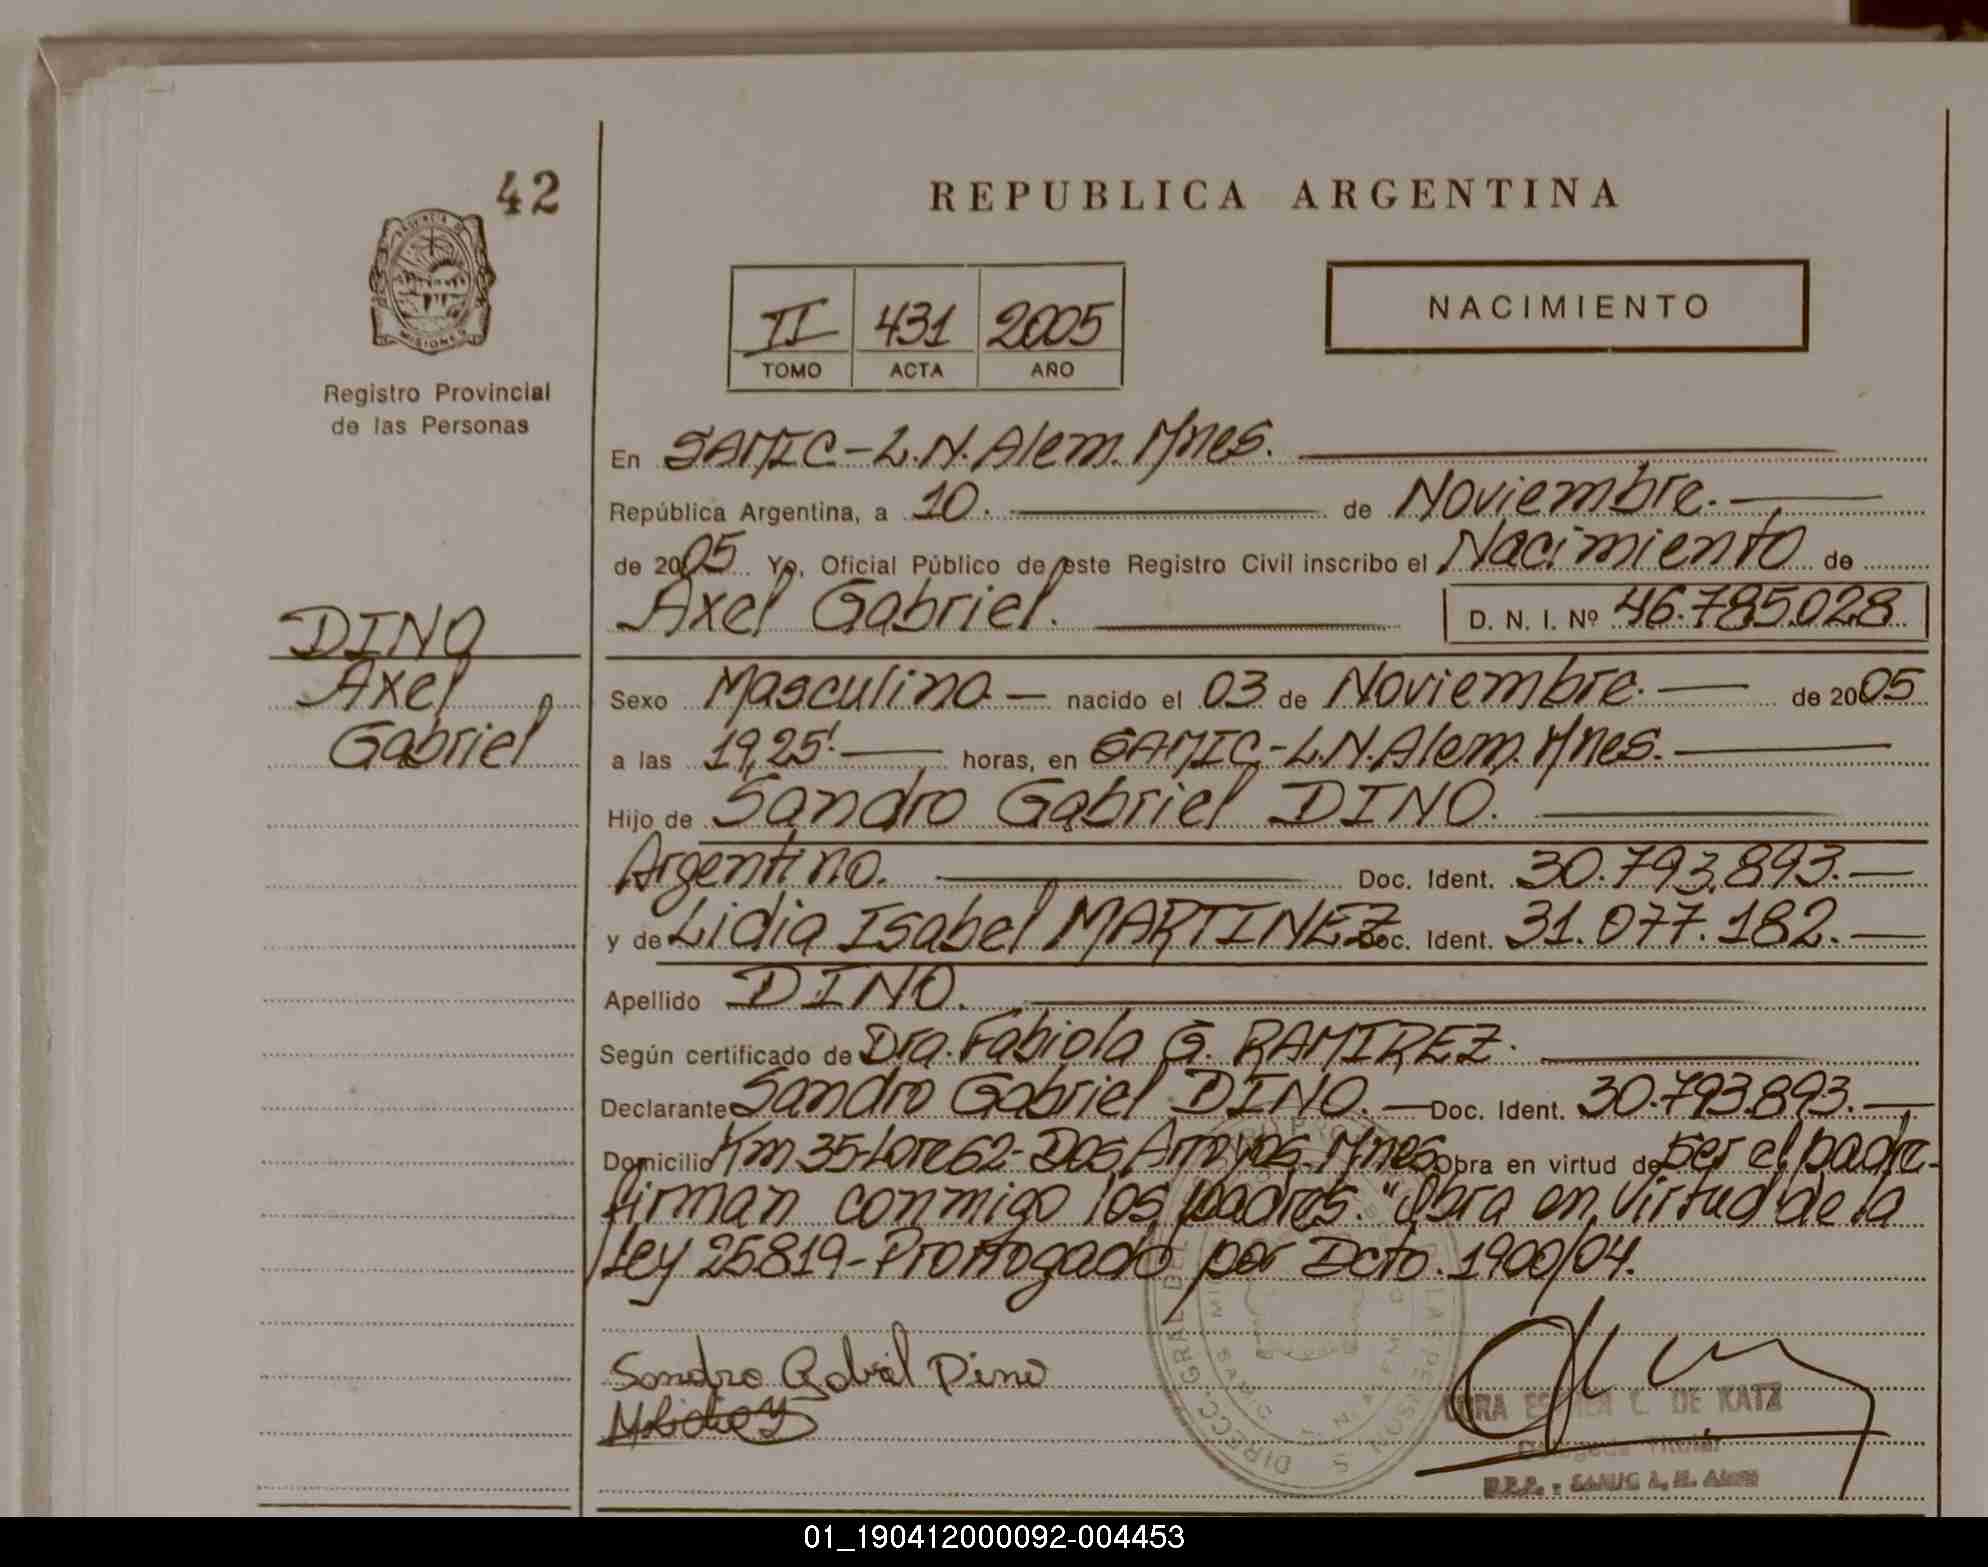 42
REPUBLICA ARGENTINA
PROVINCIA DE
MISIONES
Registro Provincial
de las Personas
II 431 2005
TOMO ACTA AÑO
NACIMIENTO
En SAMIC-L.N.Alem.Mnes.
República Argentina, a 10. de Noviembre.
de 2005 Yo, Oficial Público de este Registro Civil inscribo el Nacimiento de
Axel Gabriel. D. N. I. Nº 46.785.028
DINO
Axel
Gabriel
Sexo Masculino nacido el 03 de Noviembre. de 2005
a las 19,25'. horas, en SAMIC-L.N.Alem.Mnes.
Hijo de Sandro Gabriel DINO.
Argentino. Doc. Ident. 30.793.893.
y de Lidia Isabel MARTINEZ Doc. Ident. 31.077.182.
Apellido DINO.
Según certificado de Dra. Fabiola G. RAMIREZ.
Declarante Sandro Gabriel DINO. Doc. Ident. 30.793.893.
Domicilio Km 35-Lote 62-Dos Arroyos-Mnes Obra en virtud de ser el padre
firman conmigo los padres. "Obra en Virtud de la
Ley 25819-Prorrogado por Dcto. 1900/04.
Sandro Gabriel Dino
DE KATZ
Titular
SAMIC L. N. Alem
01_190412000092-004453